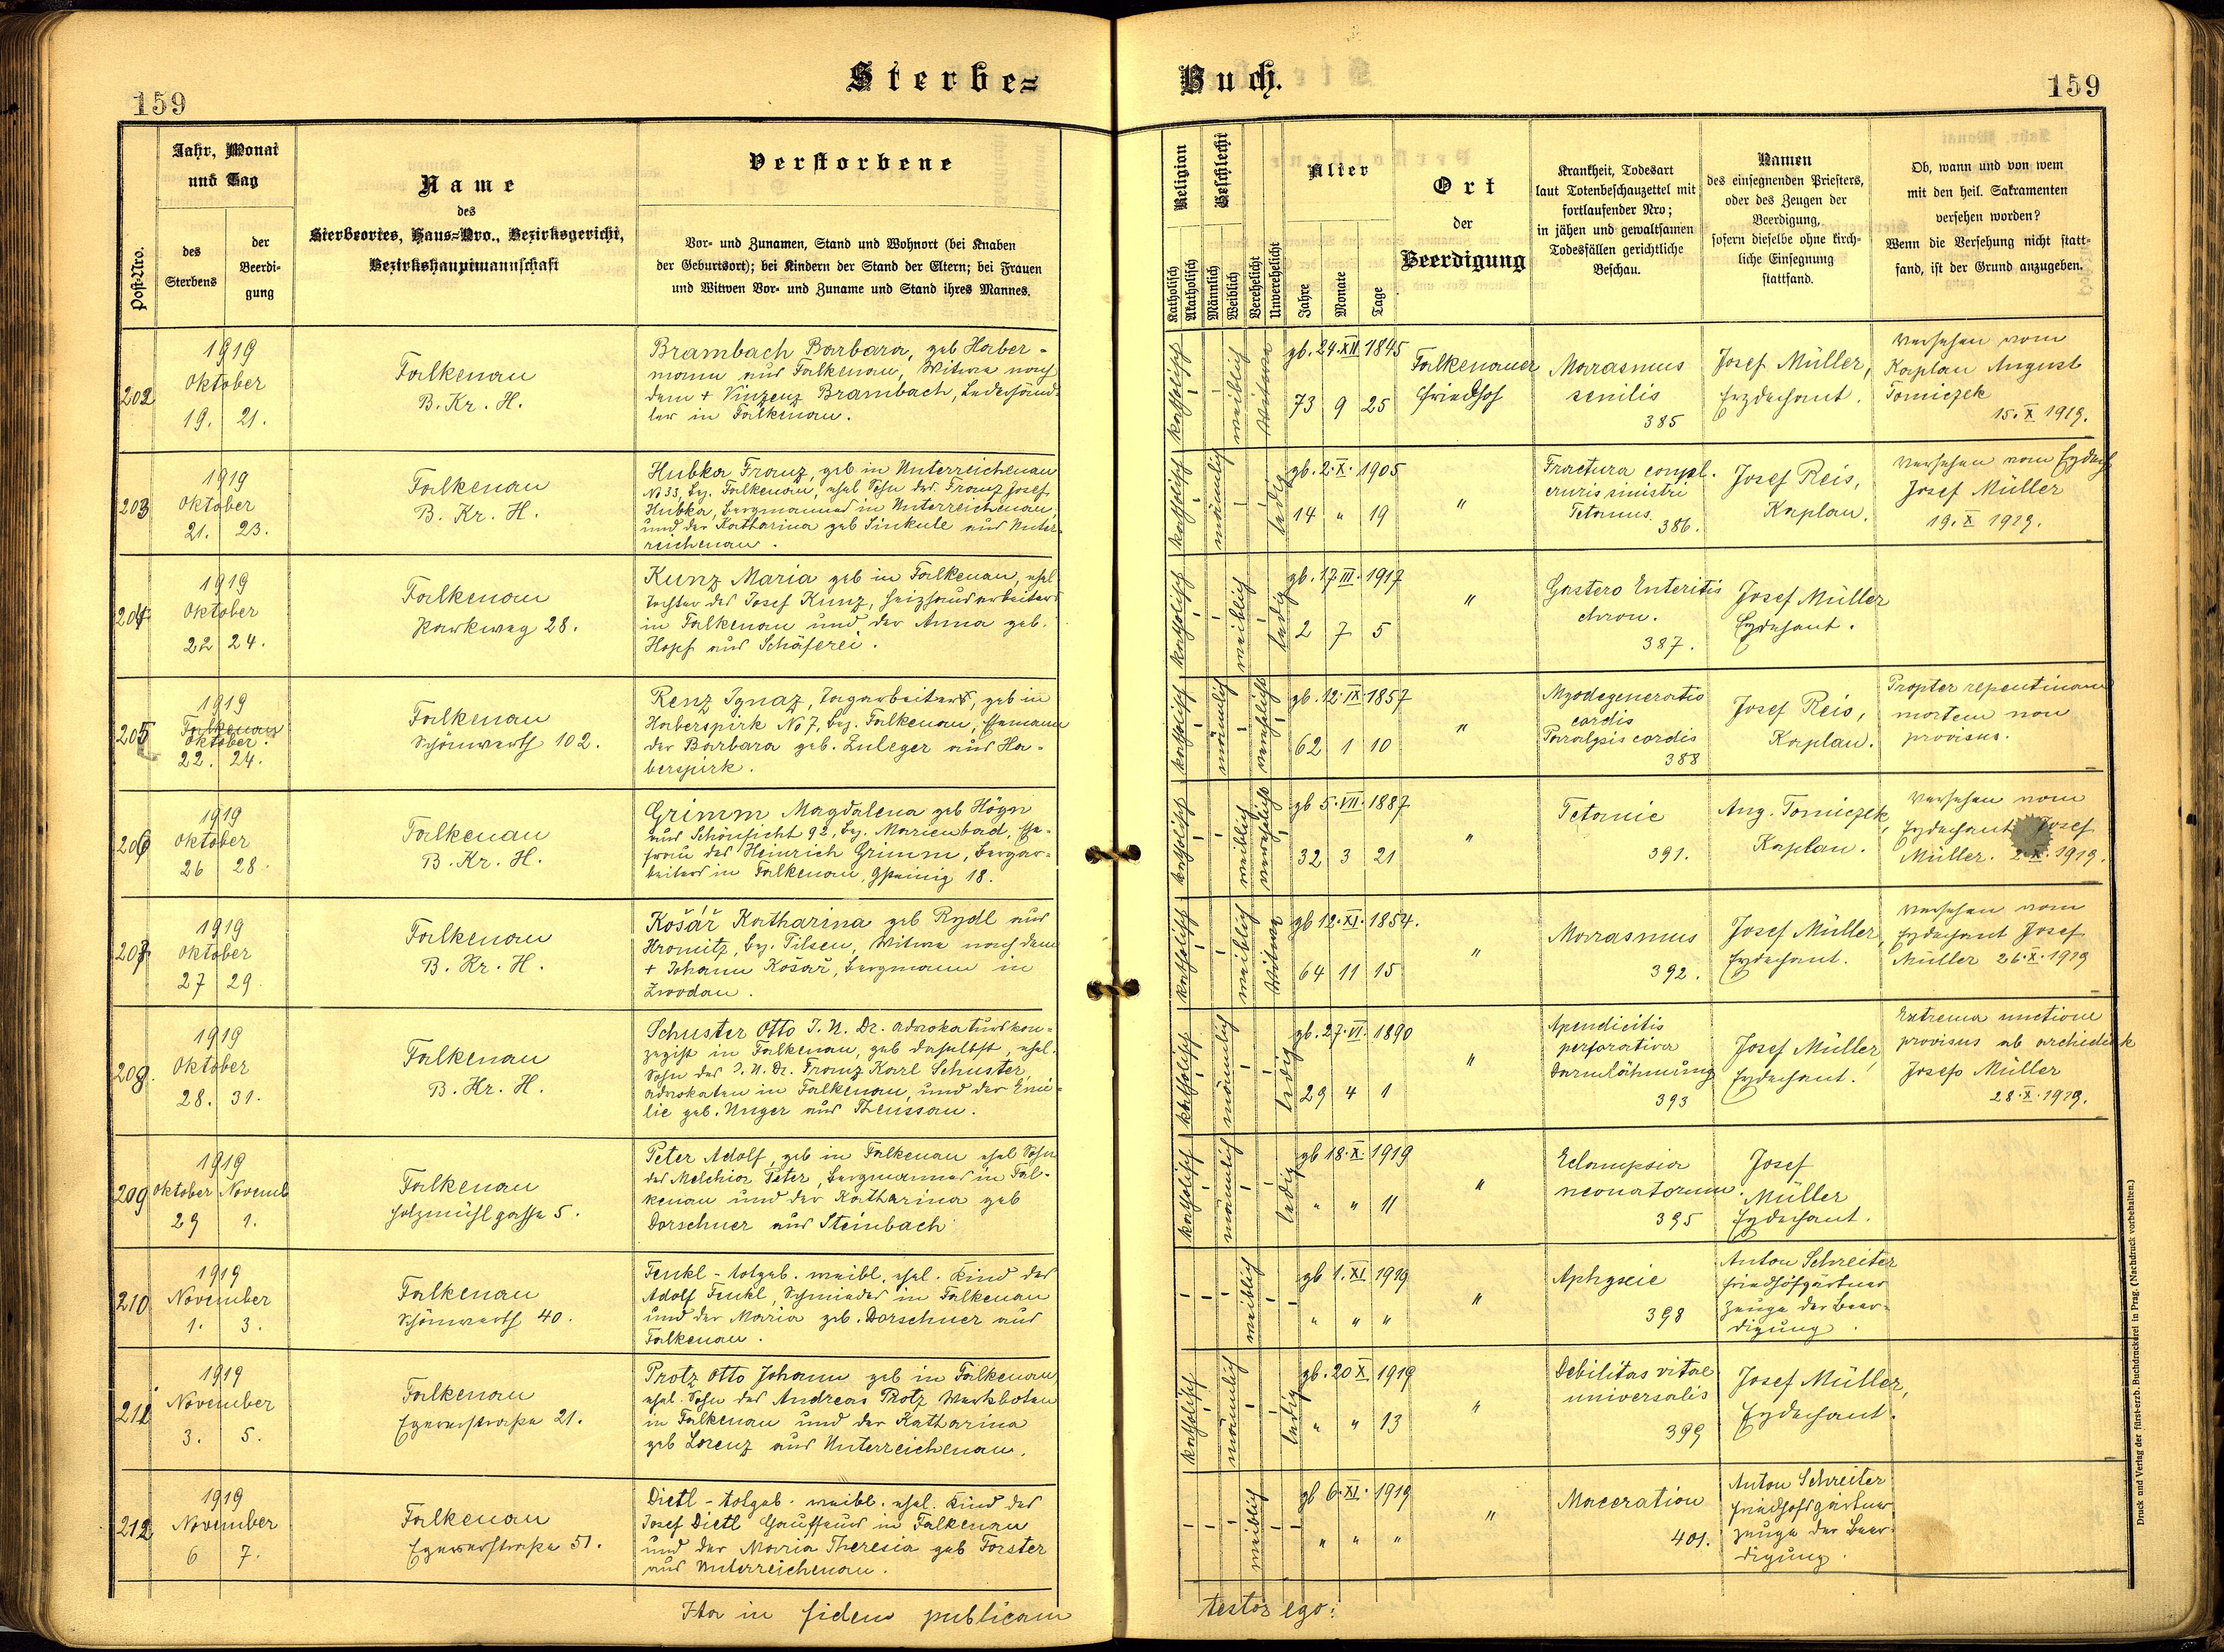 Sterbe=
Buch.
159
159
Post-Nro.
Jahr, Monat
und Tag
des
Sterbens
der
Beerdi-
gung
Name
des
Sterbeortes, Haus=Nro., Bezirksgericht,
Bezirkshauptmannschaft
Verstorbene
Vor- und Zunamen, Stand und Wohnort (bei Knaben
der Geburtsort); bei Kindern der Stand der Eltern; bei Frauen
und Witwen Vor- und Zuname und Stand ihres Mannes.
Religion
Katholisch
Akatholisch
Geschlecht
Männlich
Weiblich
Verehelicht
Unverehelicht
Alter
Jahre
Monate
Tage
Ort
der
Beerdigung
Krankheit, Todesart
laut Totenbeschauzettel mit
fortlaufender Nro;
in jähen und gewaltsamen
Todesfällen gerichtliche
Beschau.
Namen
des einsegnenden Priesters,
oder des Zeugen der
Beerdigung,
sofern dieselbe ohne kirch-
liche Einsegnung
stattfand.
Ob, wann und von wem
mit den heil. Sakramenten
versehen worden?
Wenn die Versehung nicht statt-
fand, ist der Grund anzugeben.
202
1919
Oktober
19. 21.
Falkenau
B. Kr. H.
Brambach Barbara, geb Haber-
mann aus Falkenau, Witwe nach
dem + Vinzenz Brambach, Lederhänd-
ler in Falkenau.
katholisch
weiblich
Witwe
gb. 24. XII 1845
73 9 25
Falkenauer
Friedhof
Marasmus
senilis
385
Josef Müller,
Erzdechant.
Versehen vom
Kaplan August
Tomiczek
15. X 1919.
203
1919
Oktober
21. 23.
Falkenau
B. Kr. H.
Hubka Franz, geb in Unterreichenau
No 33, bez. Falkenau, ehel Sohn des Franz Josef
Hubka, Bergmannes in Unterreichenau,
und der Katharina geb Sinkule aus Unter-
reichenau.
katholisch
männlich
ledig
gb. 2. X. 1905
14 " 19
"
Fractura compl.
cruris sinistri
Tetanus.
386.
Josef Reis,
Kaplan.
Versehen vom Erzdech
Josef Müller
19. X 1919.
204
1919
Oktober
22 24.
Falkenau
Parkweg 28.
Kunz Maria geb in Falkenau, ehel
Tochter des Josef Kunz, Heizhausarbeiters
in Falkenau und der Anna geb.
Hopf aus Schäferei.
katholisch
weiblich
ledig
gb. 17. III. 1917
2 7 5
"
Gastero Enteritis
chron.
387.
Josef Müller
Erzdechant.
205
1919
Falkenau
Oktober.
22. 24.
Falkenau
Schönwerth 102.
Renz Ignaz, Tagarbeiter, geb in
Haberspirk No 7, bez. Falkenau, Ehemann
der Barbara geb. Zuleger aus Ha-
berspirk.
katholisch
männlich
verehelicht
gb. 12. IX 1857
62 1 10
"
Myodegeneratio
cordis
Paralysis cordis
388
Josef Reis,
Kaplan.
Propter repentinam
mortem non
provisus.
206
1919
Oktober
26 28.
Falkenau
B. Kr. H.
Grimm Magdalena geb Högn
aus Schönficht 92, bez. Marienbad, Ehe-
frau des Heinrich Grimm, Bergar-
beiters in Falkenau, Gsteinig 18.
katholisch
weiblich
verehelicht
gb 5. VII. 1887
32 3 21
"
Tetanie
391.
Aug. Tomiczek,
Kaplan.
Versehen vom
Erzdechant Josef
Müller. X. 1919.
207
1919
Oktober
27 29.
Falkenau
B. Kr. H.
Košář Katharina geb Rydl aus
Hromitz, bez. Pilsen, Witwe nach dem
+ Johann Košař, Bergmann in
Zwodau.
katholisch
weiblich
Witwe
gb 12. XI. 1854.
64 11 15
"
Marasmus
392.
Josef Müller,
Erzdechant.
Versehen vom
Erzdechant Josef
Müller 26. X. 1919
208.
1919
Oktober
28. 31.
Falkenau
B. Kr. H.
Schuster Otto J. U. Dr. Advokaturskon-
zipist in Falkenau, geb daselbst, ehel.
Sohn des J. U. Dr. Franz Karl Schuster,
Advokaten in Falkenau, und der Emi-
lie geb. Unger aus Theussau.
katholisch
männlich
ledig
gb. 27. VI. 1890
29 4 1
"
Apendicitis
perforativa
Darmlähmung
393
Josef Müller,
Erzdechant.
Extrema unctione
provisus ab archidiak
Josefo Müller
28. X. 1919.
209
1919
Oktober Novemb
29 1.
Falkenau
Holzmühlgasse 5.
Peter Adolf, geb in Falkenau ehel Sohn
des Melchior Peter, Bergmannes in Fal-
kenau und der Katharina geb
Dorschner aus Steinbach
katholisch
männlich
ledig
gb 18. X. 1919
" " 11
"
Eclampsia
neonatorum.
395
Josef
Müller
Erzdechant.
210
1919
November
1. 3.
Falkenau
Schönwerth 40.
Fenkl - totgeb. weibl. ehel. Kind des
Adolf Fenkl, Schmiedes in Falkenau
und der Maria geb. Dorschner aus
Falkenau.
weiblich
gb 1. XI 1919
" " "
"
Aphyxie
398
Anton Schreiter
Friedhofgärtner
Zeuge der Beer-
digung.
211
1919
November
3. 5.
Falkenau
Egererstraße 21.
Protz Otto Johann geb in Falkenau
ehel. Sohn des Andreas Protz Werksboten
in Falkenau und der Katharina
geb Lorenz aus Unterreichenau.
katholisch
männlich
ledig
gb. 20 X. 1919
" " 13
"
Debilitas vitae
universalis
399
Josef Müller,
Erzdechant.
212
1919
November
6 7.
Falkenau
Egererstraße 51.
Dietl - totgeb. weibl. ehel. Kind des
Josef Dietl Chauffeurs in Falkenau
und der Maria Theresia geb Forster
aus Unterreichenau.
weiblich
gb 6. XI. 1919
" " "
"
Maceration
401.
Anton Schreiter
Friedhofsgärtner
Zeuge der Beer-
digung.
Ita in fidem publicam
testor ego:
Druck und Verlag der fürst-erzb. Buchdruckerei in Prag. (Nachdruck vorbehalten.)